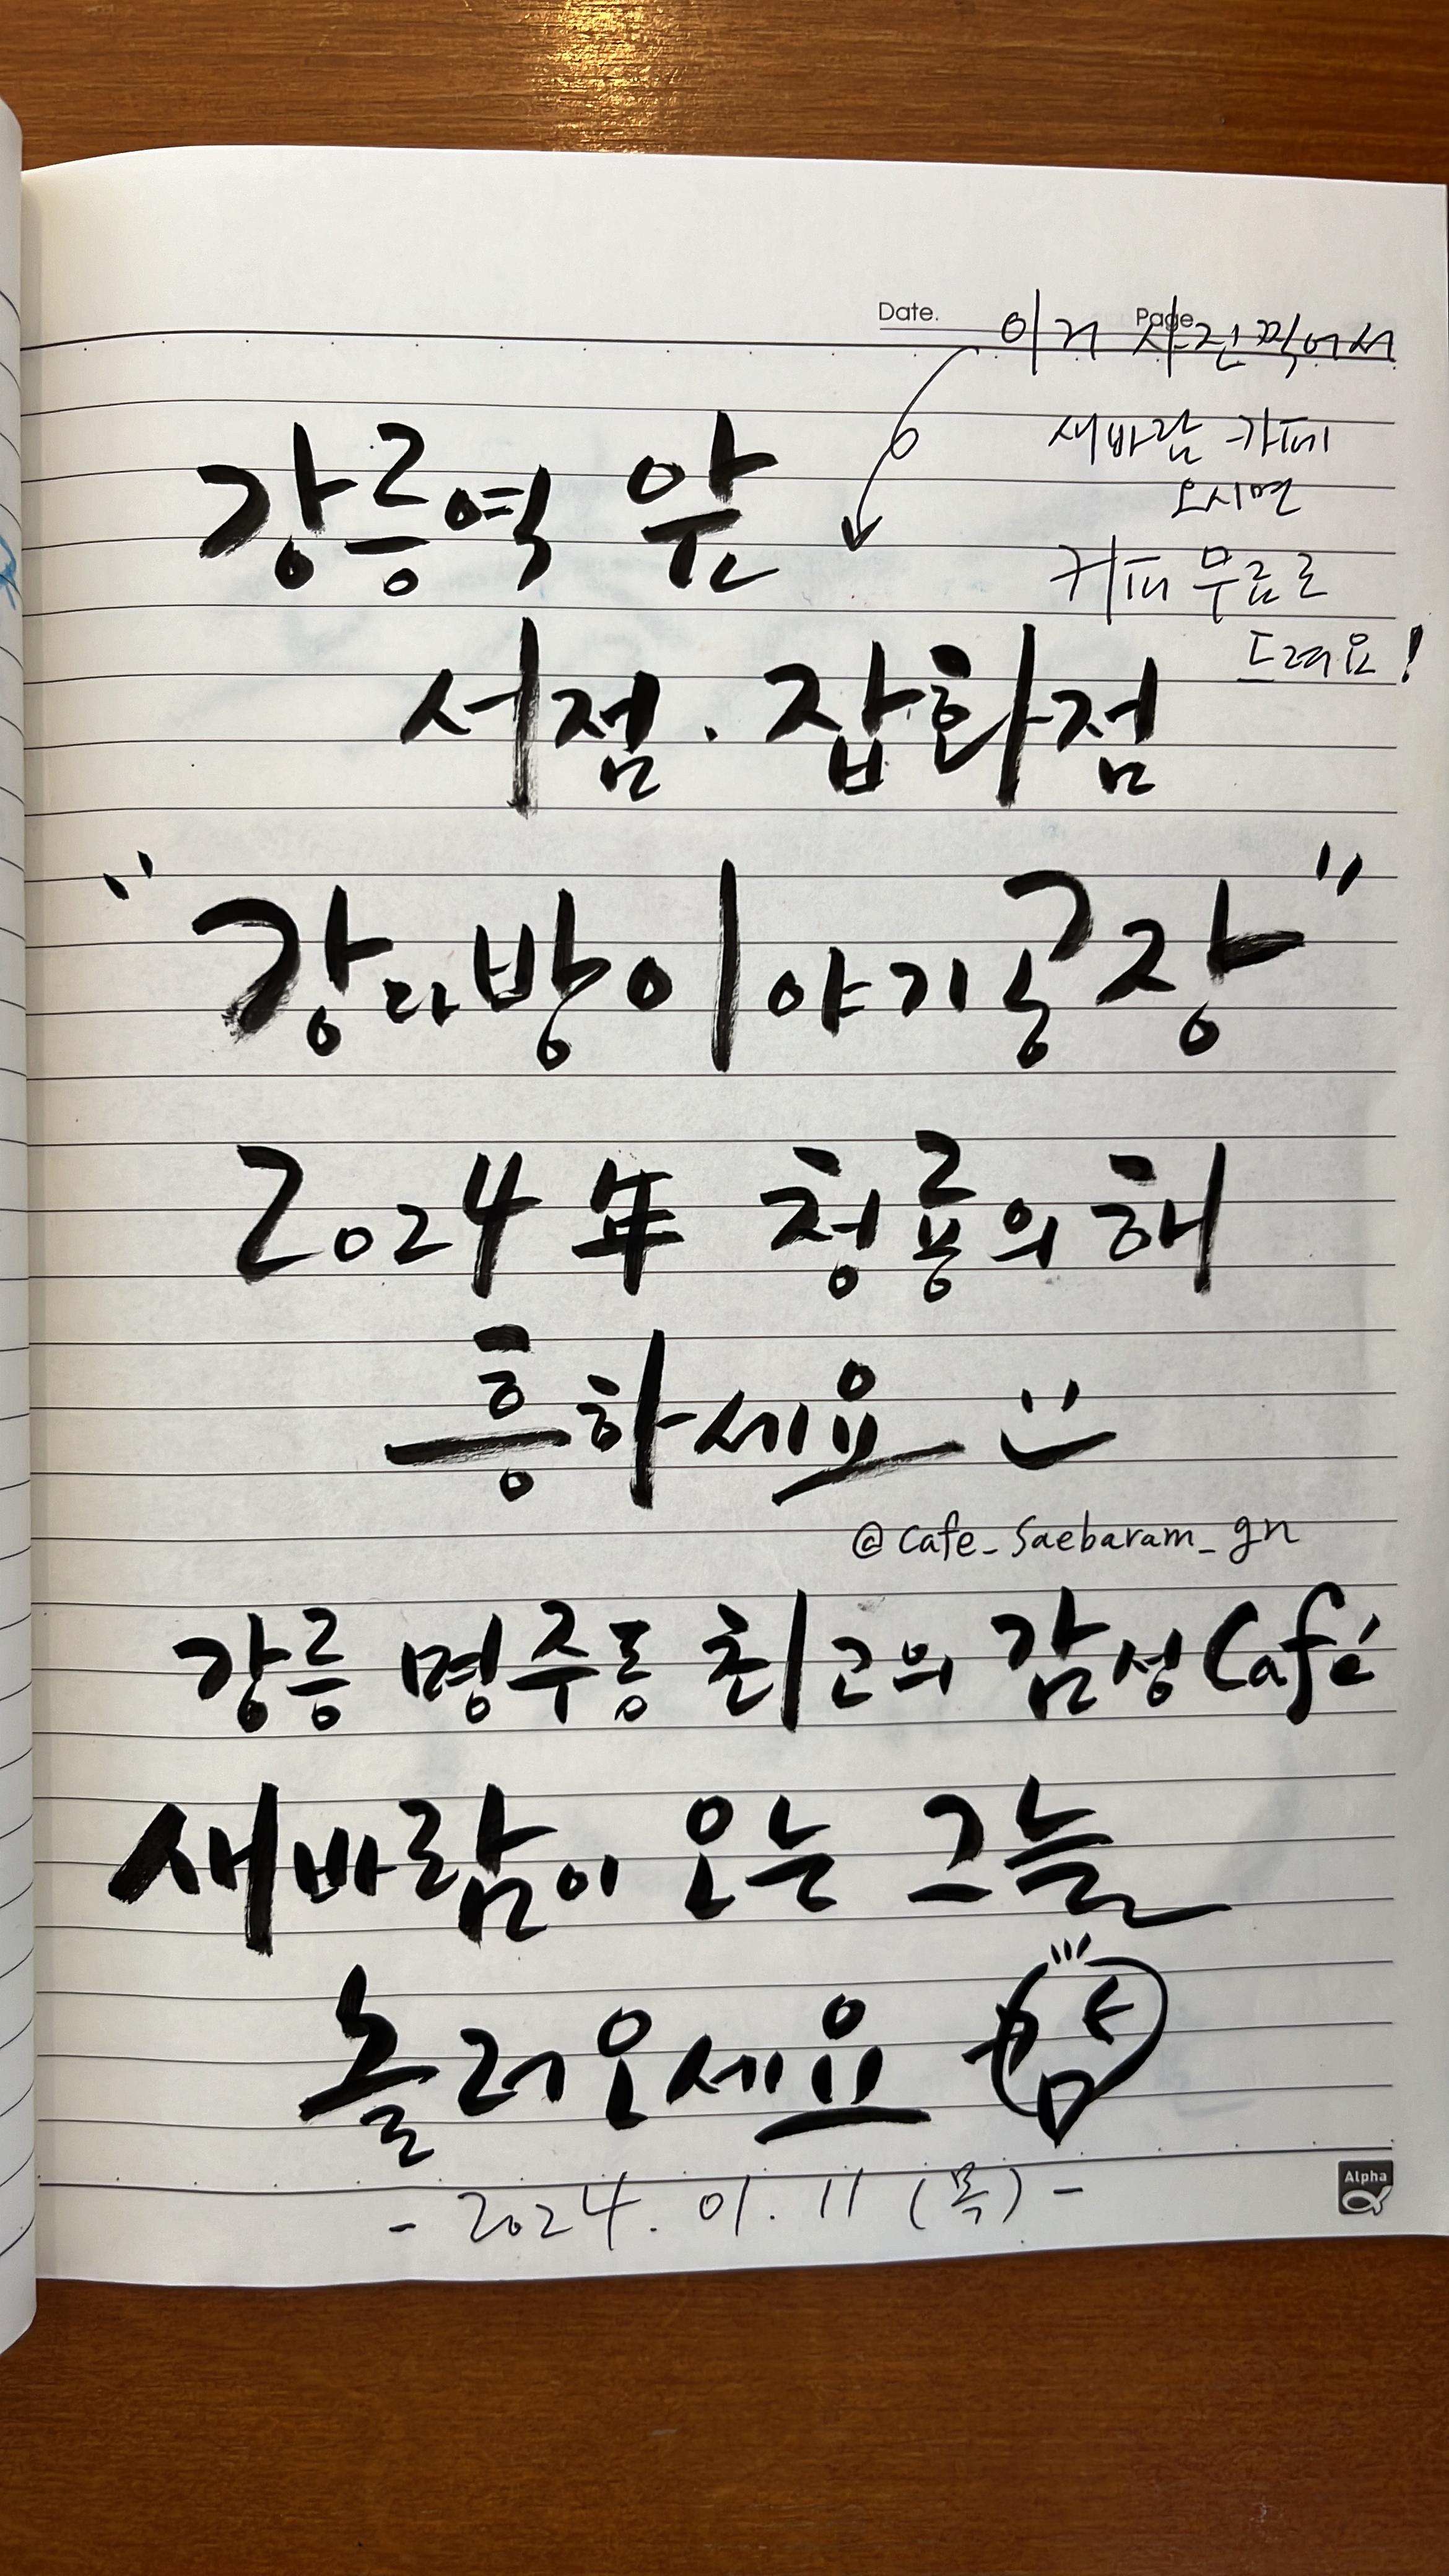 Date.
Page
이거 사진찍어서
새바람 카페
오시면
커피 무료로
드려요!
강릉역 앞
서점. 잡화점
"강다방이야기공장"
2024年 청룡의해
흥하세요
@cafe_saebaram_gn
강릉 명주동 최고의 감성Café
새바람이 오는 그늘
놀러오세요
- 2024. 01. 11 (목) -
Alpha